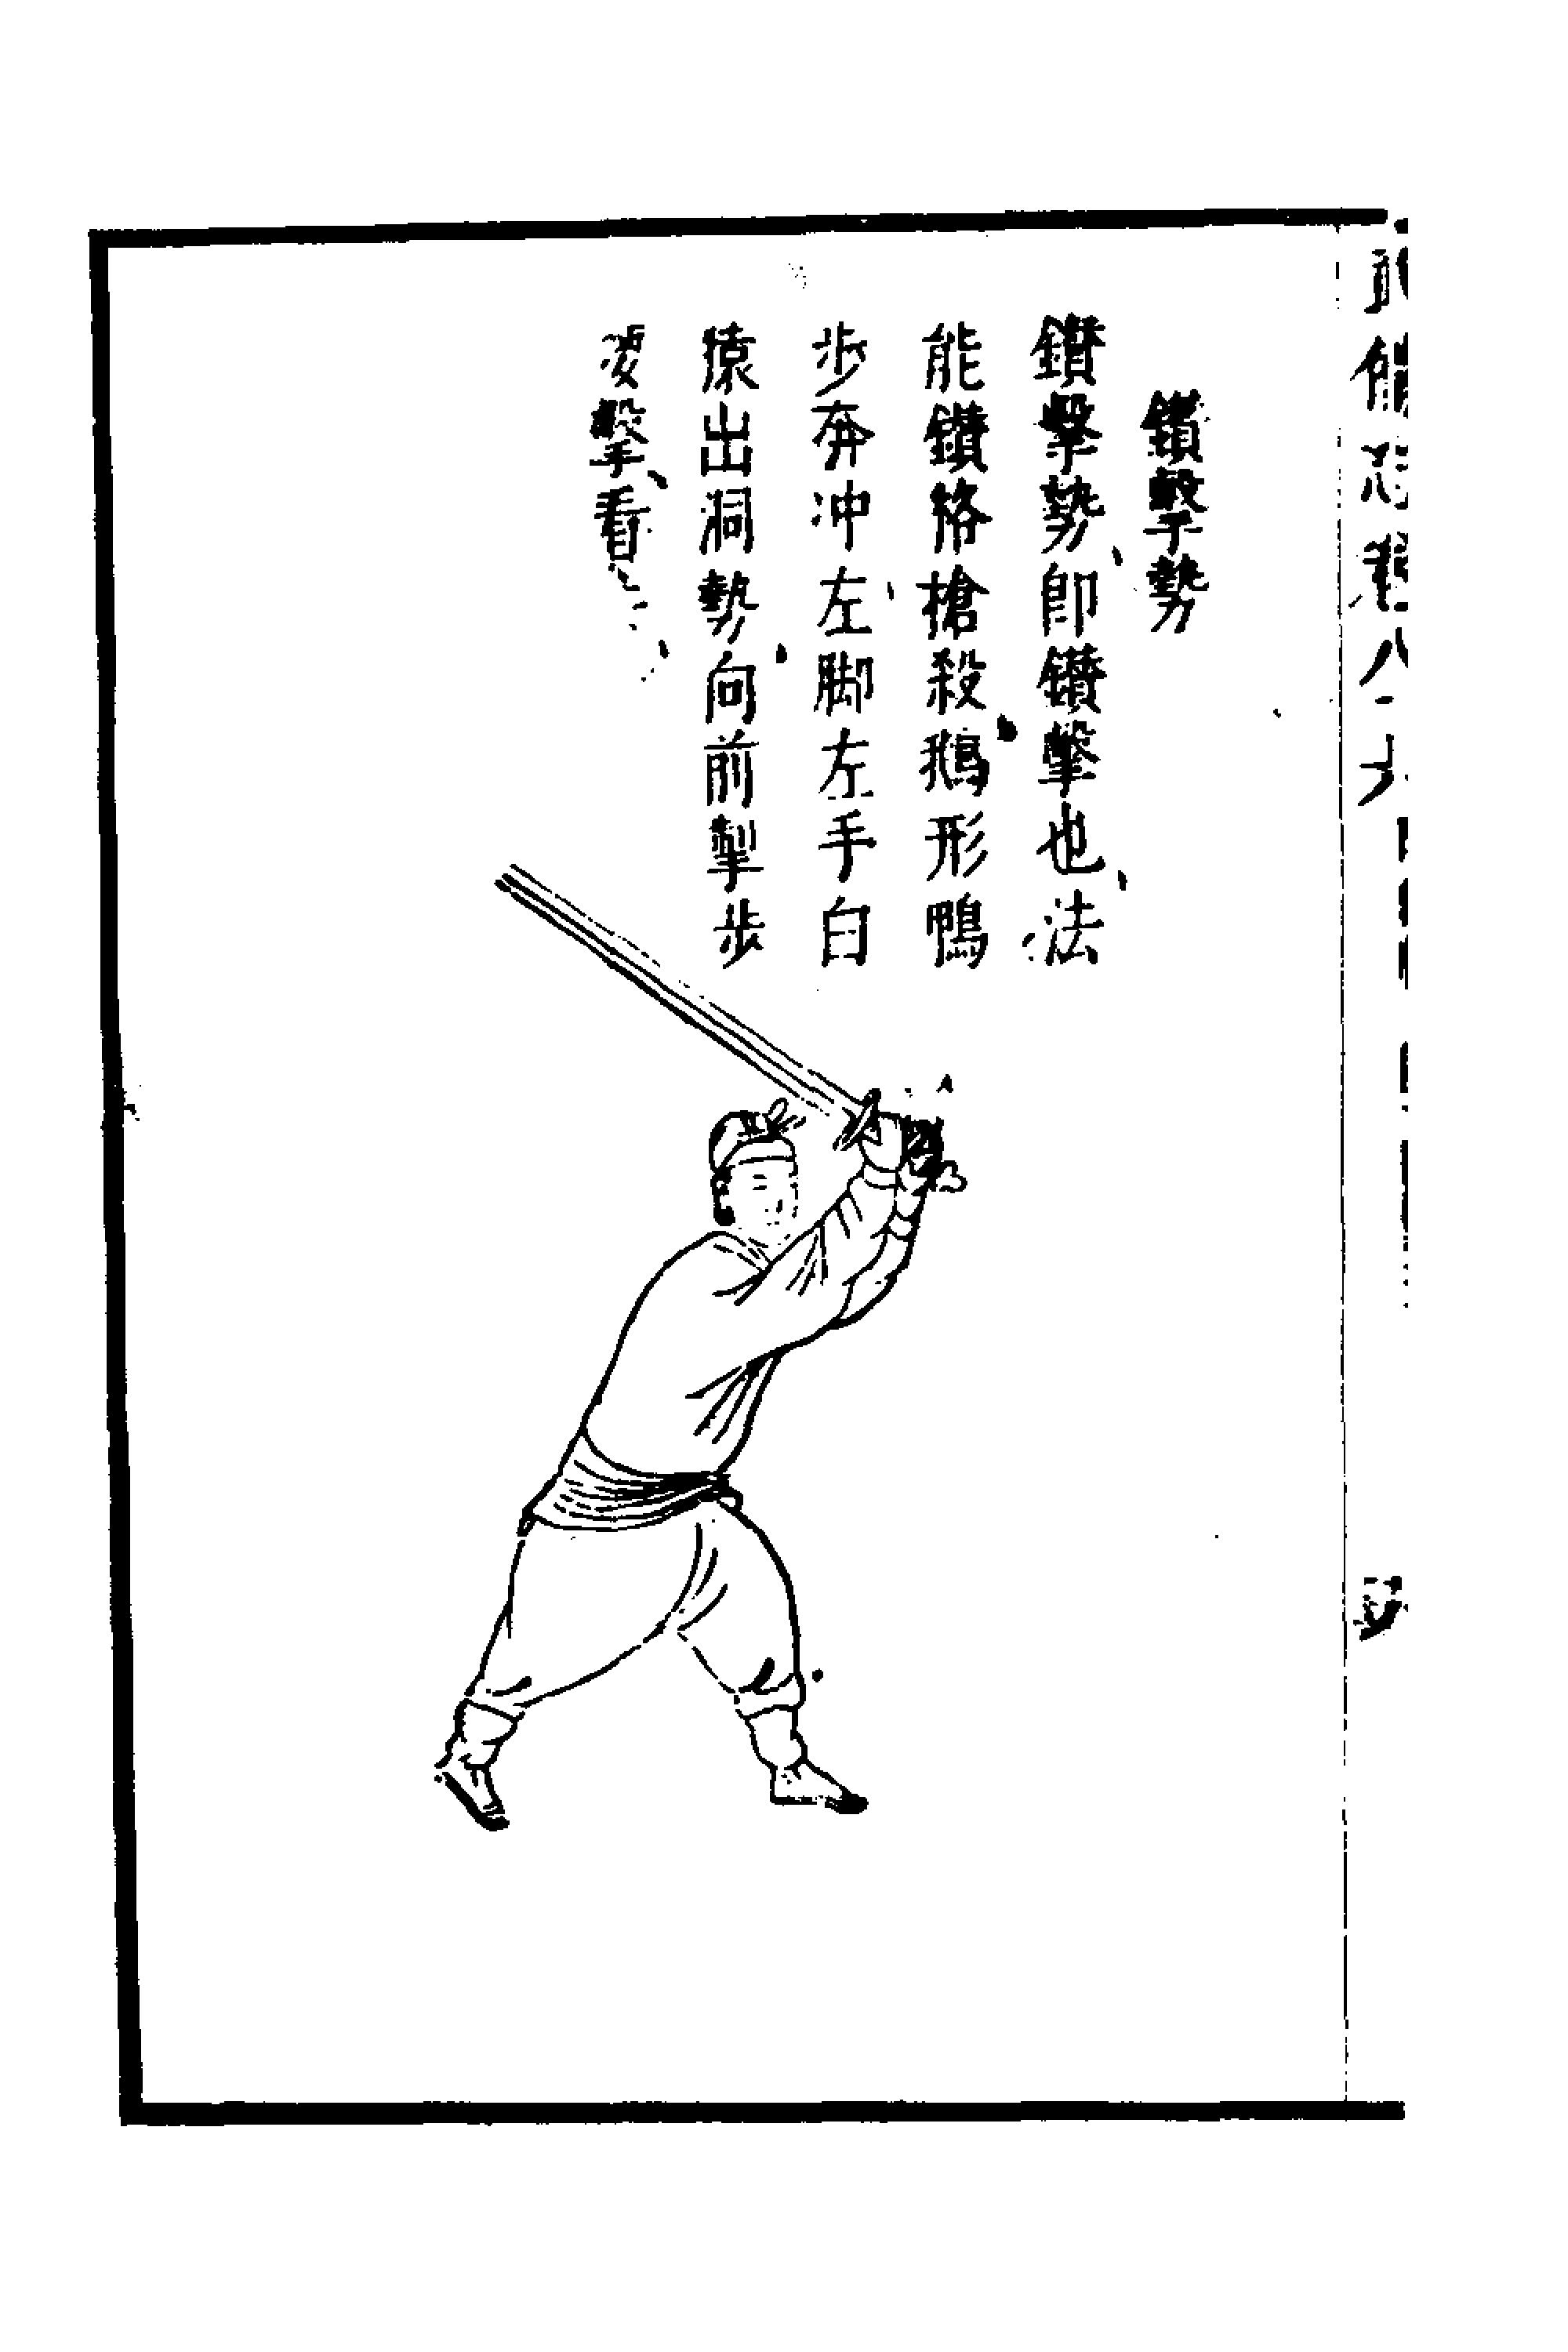 鑽擊勢
鑽擊勢即鑽擊也法
能鑽格槍殺鵝形鴨
步奔冲左脚左手白
猿出洞勢向前掣步
凌擊看
備志卷八十